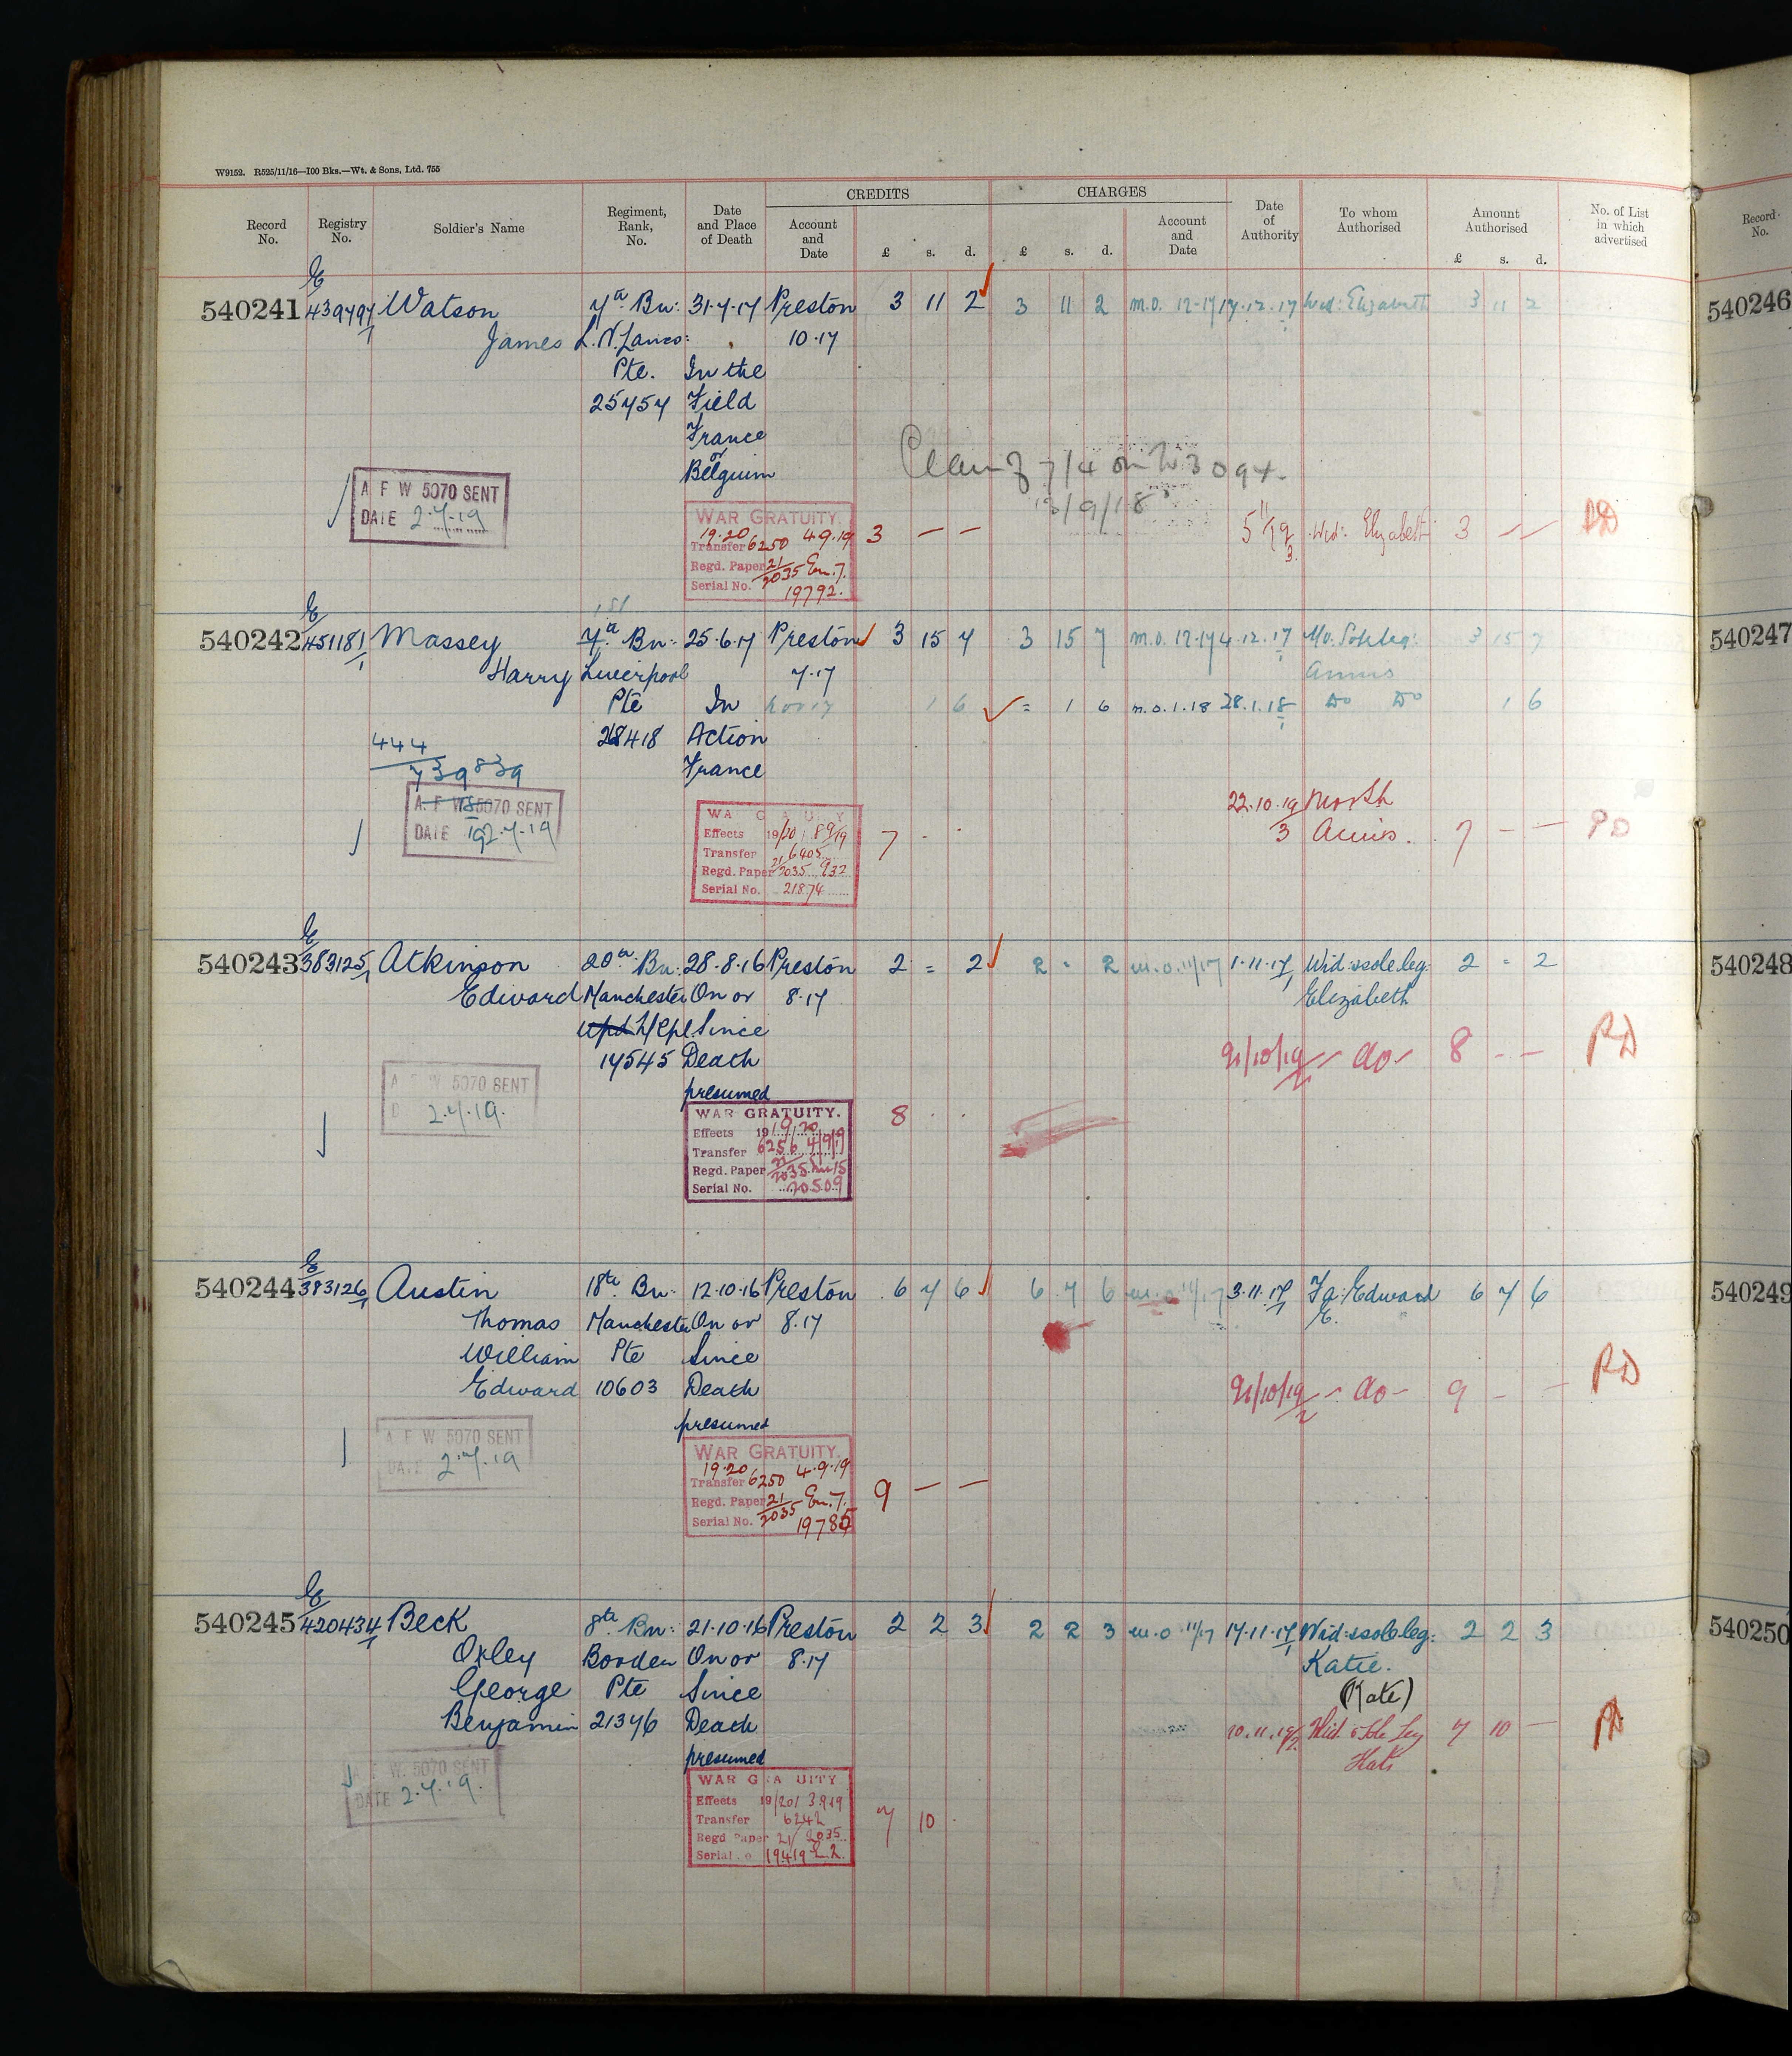 W9152. R525/11/16—100 Bks.—Wt. & Sons, Ltd. 755
CREDITS CHARGES
Record No. Registry No. Soldier's Name Regiment, Rank, No. Date and Place of Death Account and Date £ s. d. £ s. d. Account and Date Date of Authority To whom Authorised Amount Authorised £ s. d. No. of List in which advertised
Record No.
540241 E/439797/1 Watson 7th Bn: 31.7.17 Preston 3 11 2 3 11 2 m.o. 12-17 17.12.17 Wid: Elizabeth 3 11 2
540246
James L.N. Lancs: 10.17
Pte. In the
25757 Field
France
or
Belgium
7/4
13/9/18
A F W 5070 SENT
DATE 2.7.19
WAR GRATUITY.
19.20 4.9.19 3 — —
Transfer 6250
Regd. Paper 21/2035 Em.7.
Serial No. 19792.
Wid: Elizabeth 3 — —
540242 E/451181/1 Massey 7th Bn: 25.6.17 Preston 3 15 7 3 15 7 m.o. 12.17 4.12.17 Mo. Sole leg: 3 15 7
540247
1st
Harry Liverpool 7.17 Annis
Pte In 1 6 = 1 6 m.o.1.18 28.1.18 Do Do 1 6
28418 Action
France
444
739839
A. F W 5070 SENT
DATE 2.7.19
22.10.19/3 Moth Annis. 7 — —
WA G A U Y
Effects 19/20 8/9/19 7 . .
Transfer 6405
Regd. Paper 21/2035 932
Serial No. 21874
540243 E/383125/1 Atkinson 20th Bn: 28.8.16 Preston 2 = 2 2 - 2 m.o.11/17 1.11.17 Wid: & sole leg: 2 - 2
540248
Edward Manchester On or 8.17 Elizabeth
L/Cpl Since
17545 Death
presumed
do 8 - —
RD
A F W 5070 SENT
2.7.19.
WAR GRATUITY.
Effects 1919/20 8 . .
Transfer 6256 4/9/19
Regd. Paper 21/2035
Serial No. 20509
540244 E/383126/1 Austin 18th Bn: 12.10.16 Preston 6 7 6 6 7 6 m.o.11/17 3.11.17 Fa: Edward 6 7 6
540249
E.
Thomas Manchester On or 8.17
William Pte Since
Edward 10603 Death
presumed
do 9 - —
RD
A F W 5070 SENT
DATE 2.7.19
WAR GRATUITY.
19.20 4.9.19
Transfer 6250 9 — —
Regd. Paper 21/2035 Em.7.
Serial No. 19785
540245 E/420434/1 Beck 8th Bn: 21.10.16 Preston 2 2 3 2 2 3 m.o 11/17 17.11.17 Wid: & sole leg: 2 2 3
540250
Oxley Border On or 8.17 Katie.
George Pte Since (Kate)
Benjamin 21376 Death 10.11.19/2 Wid & Sole Leg 7 10 —
presumed Kate
A F W. 5070 SENT
DATE 2.7.19.
WAR G A UITY
Effects 19/20 3.9.19
Transfer 6242 7 10 .
Regd Paper 21/2035
Serial o 19419